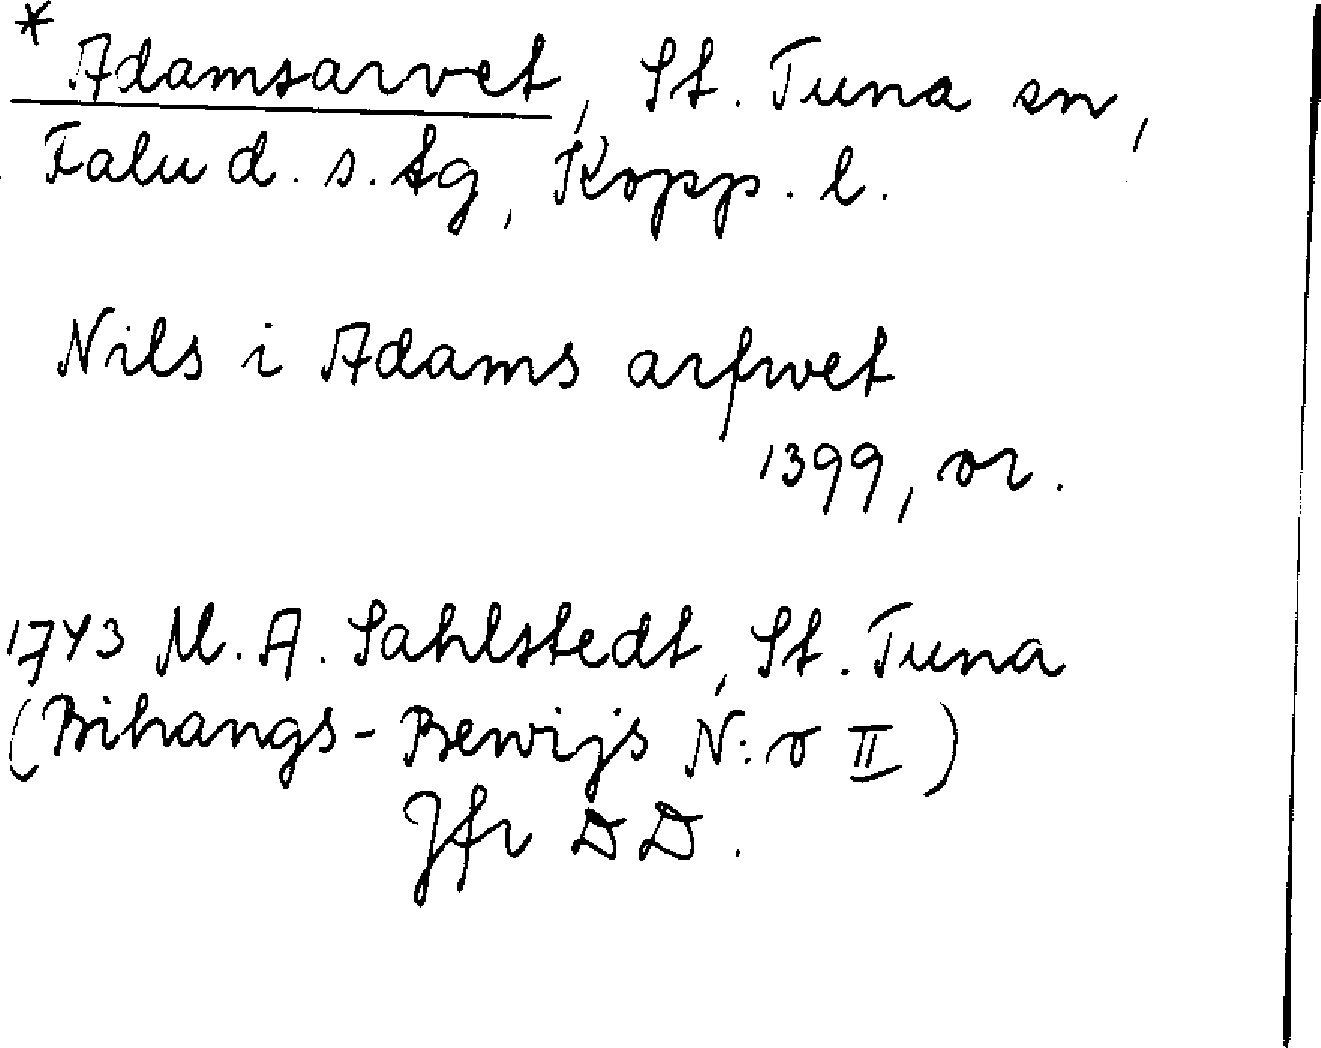 * Adamsarvet, St. Tuna sn,
Falu d. s. tg, Kopp. l.
Nils i Adams arfwet
1399, or.
1743 M. A. Sahlstedt, St. Tuna
(Bihangs-Bewijs N:o II)
Jfr DD.